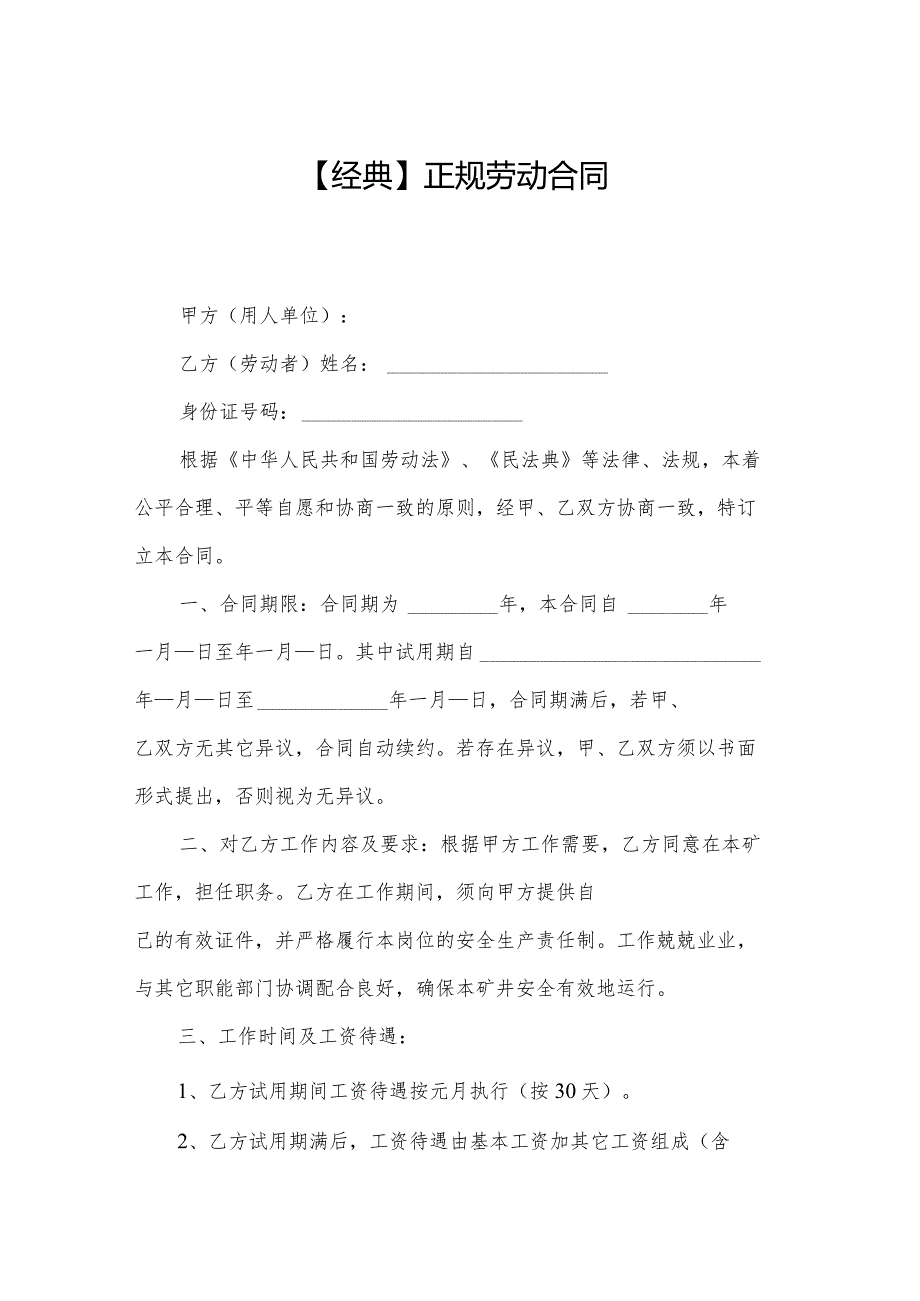 【经典】正规劳动合同
甲方（用人单位）：
乙方（劳动者）姓名： ______________________
身份证号码： ______________________
根据《中华人民共和国劳动法》、《民法典》等法律、法规，本着
公平合理、平等自愿和协商一致的原则，经甲、乙双方协商一致，特订
立本合同。
一、合同期限：合同期为 _________年，本合同自 ________年
一月—日至年一月—日。其中试用期自____________________________
年—月—日至_____________年一月—日，合同期满后，若甲、
乙双方无其它异议，合同自动续约。若存在异议，甲、乙双方须以书面
形式提出，否则视为无异议。
二、对乙方工作内容及要求：根据甲方工作需要，乙方同意在本矿
工作，担任职务。乙方在工作期间，须向甲方提供自
己的有效证件，并严格履行本岗位的安全生产责任制。工作兢兢业业，
与其它职能部门协调配合良好，确保本矿井安全有效地运行。
三、工作时间及工资待遇：
1、乙方试用期间工资待遇按元月执行（按30天）。
2、乙方试用期满后，工资待遇由基本工资加其它工资组成（含